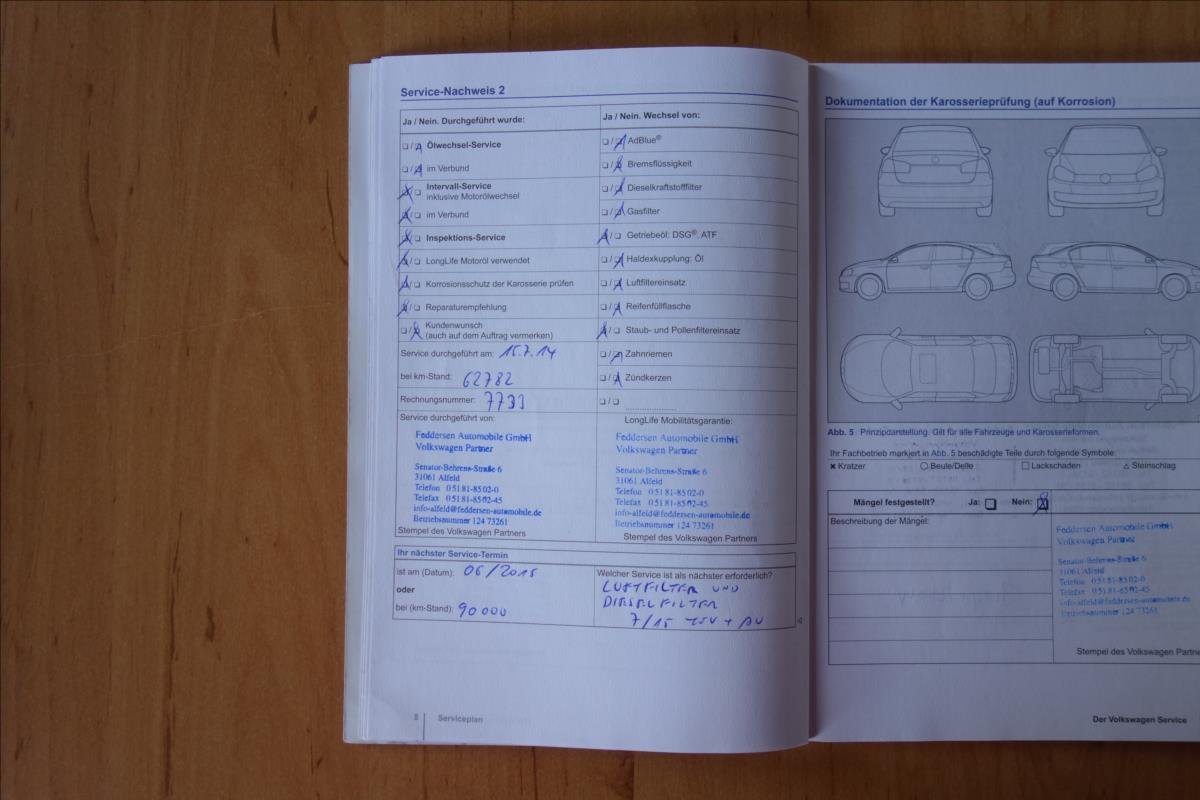 Service-Nachweis 2
Ja / Nein. Durchgeführt wurde:
Ölwechsel-Service
im Verbund
Intervall-Service
inklusive Motorölwechsel
im Verbund
Inspektions-Service
LongLife Motoröl verwendet
Korrosionsschutz der Karosserie prüfen
Reparaturempfehlung
Kundenwunsch
(auch auf dem Auftrag vermerken)
Service durchgeführt am: 15.7.14
bei km-Stand: 62782
Rechnungsnummer: 7733
Service durchgeführt von:
Feddersen Automobile GmbH
Volkswagen Partner
Senator-Behrens-Straße 6
31061 Alfeld
Telefon 05181-8502-0
Telefax 05181-8502-45
info-alfeld@feddersen-automobile.de
Betriebsnummer 124 73261
Stempel des Volkswagen Partners
Ja / Nein. Wechsel von:
AdBlue®
Bremsflüssigkeit
Dieselkraftstofffilter
Gasfilter
Getriebeöl: DSG®, ATF
Haldexkupplung: Öl
Luftfiltereinsatz
Reifenfüllflasche
Staub- und Pollenfiltereinsatz
Zahnriemen
Zündkerzen
LongLife Mobilitätsgarantie:
Feddersen Automobile GmbH
Volkswagen Partner
Senator-Behrens-Straße 6
31061 Alfeld
Telefon 05181-8502-0
Telefax 05181-8502-45
info-alfeld@feddersen-automobile.de
Betriebsnummer 124 73261
Stempel des Volkswagen Partners
Ihr nächster Service-Termin
ist am (Datum): 06/2015
oder
bei (km-Stand): 90000
Welcher Service ist als nächster erforderlich?
LUFTFILTER UND
DIESELFILTER
7/15 TÜV + AU
8 Serviceplan
Dokumentation der Karosserieprüfung (auf Korrosion)
Abb. 5 Prinzipdarstellung. Gilt für alle Fahrzeuge und Karosserieformen.
Ihr Fachbetrieb markiert in Abb. 5 beschädigte Teile durch folgende Symbole:
Kratzer Beule/Delle Lackschaden Steinschlag
Mängel festgestellt? Ja: Nein:
Beschreibung der Mängel:
Feddersen Automobile GmbH
Volkswagen Partner
Senator-Behrens-Straße 6
31061 Alfeld
Telefon 05181-8502-0
Telefax 05181-8502-45
info-alfeld@feddersen-automobile.de
Betriebsnummer 124 73261
Stempel des Volkswagen
Der Volkswagen Service